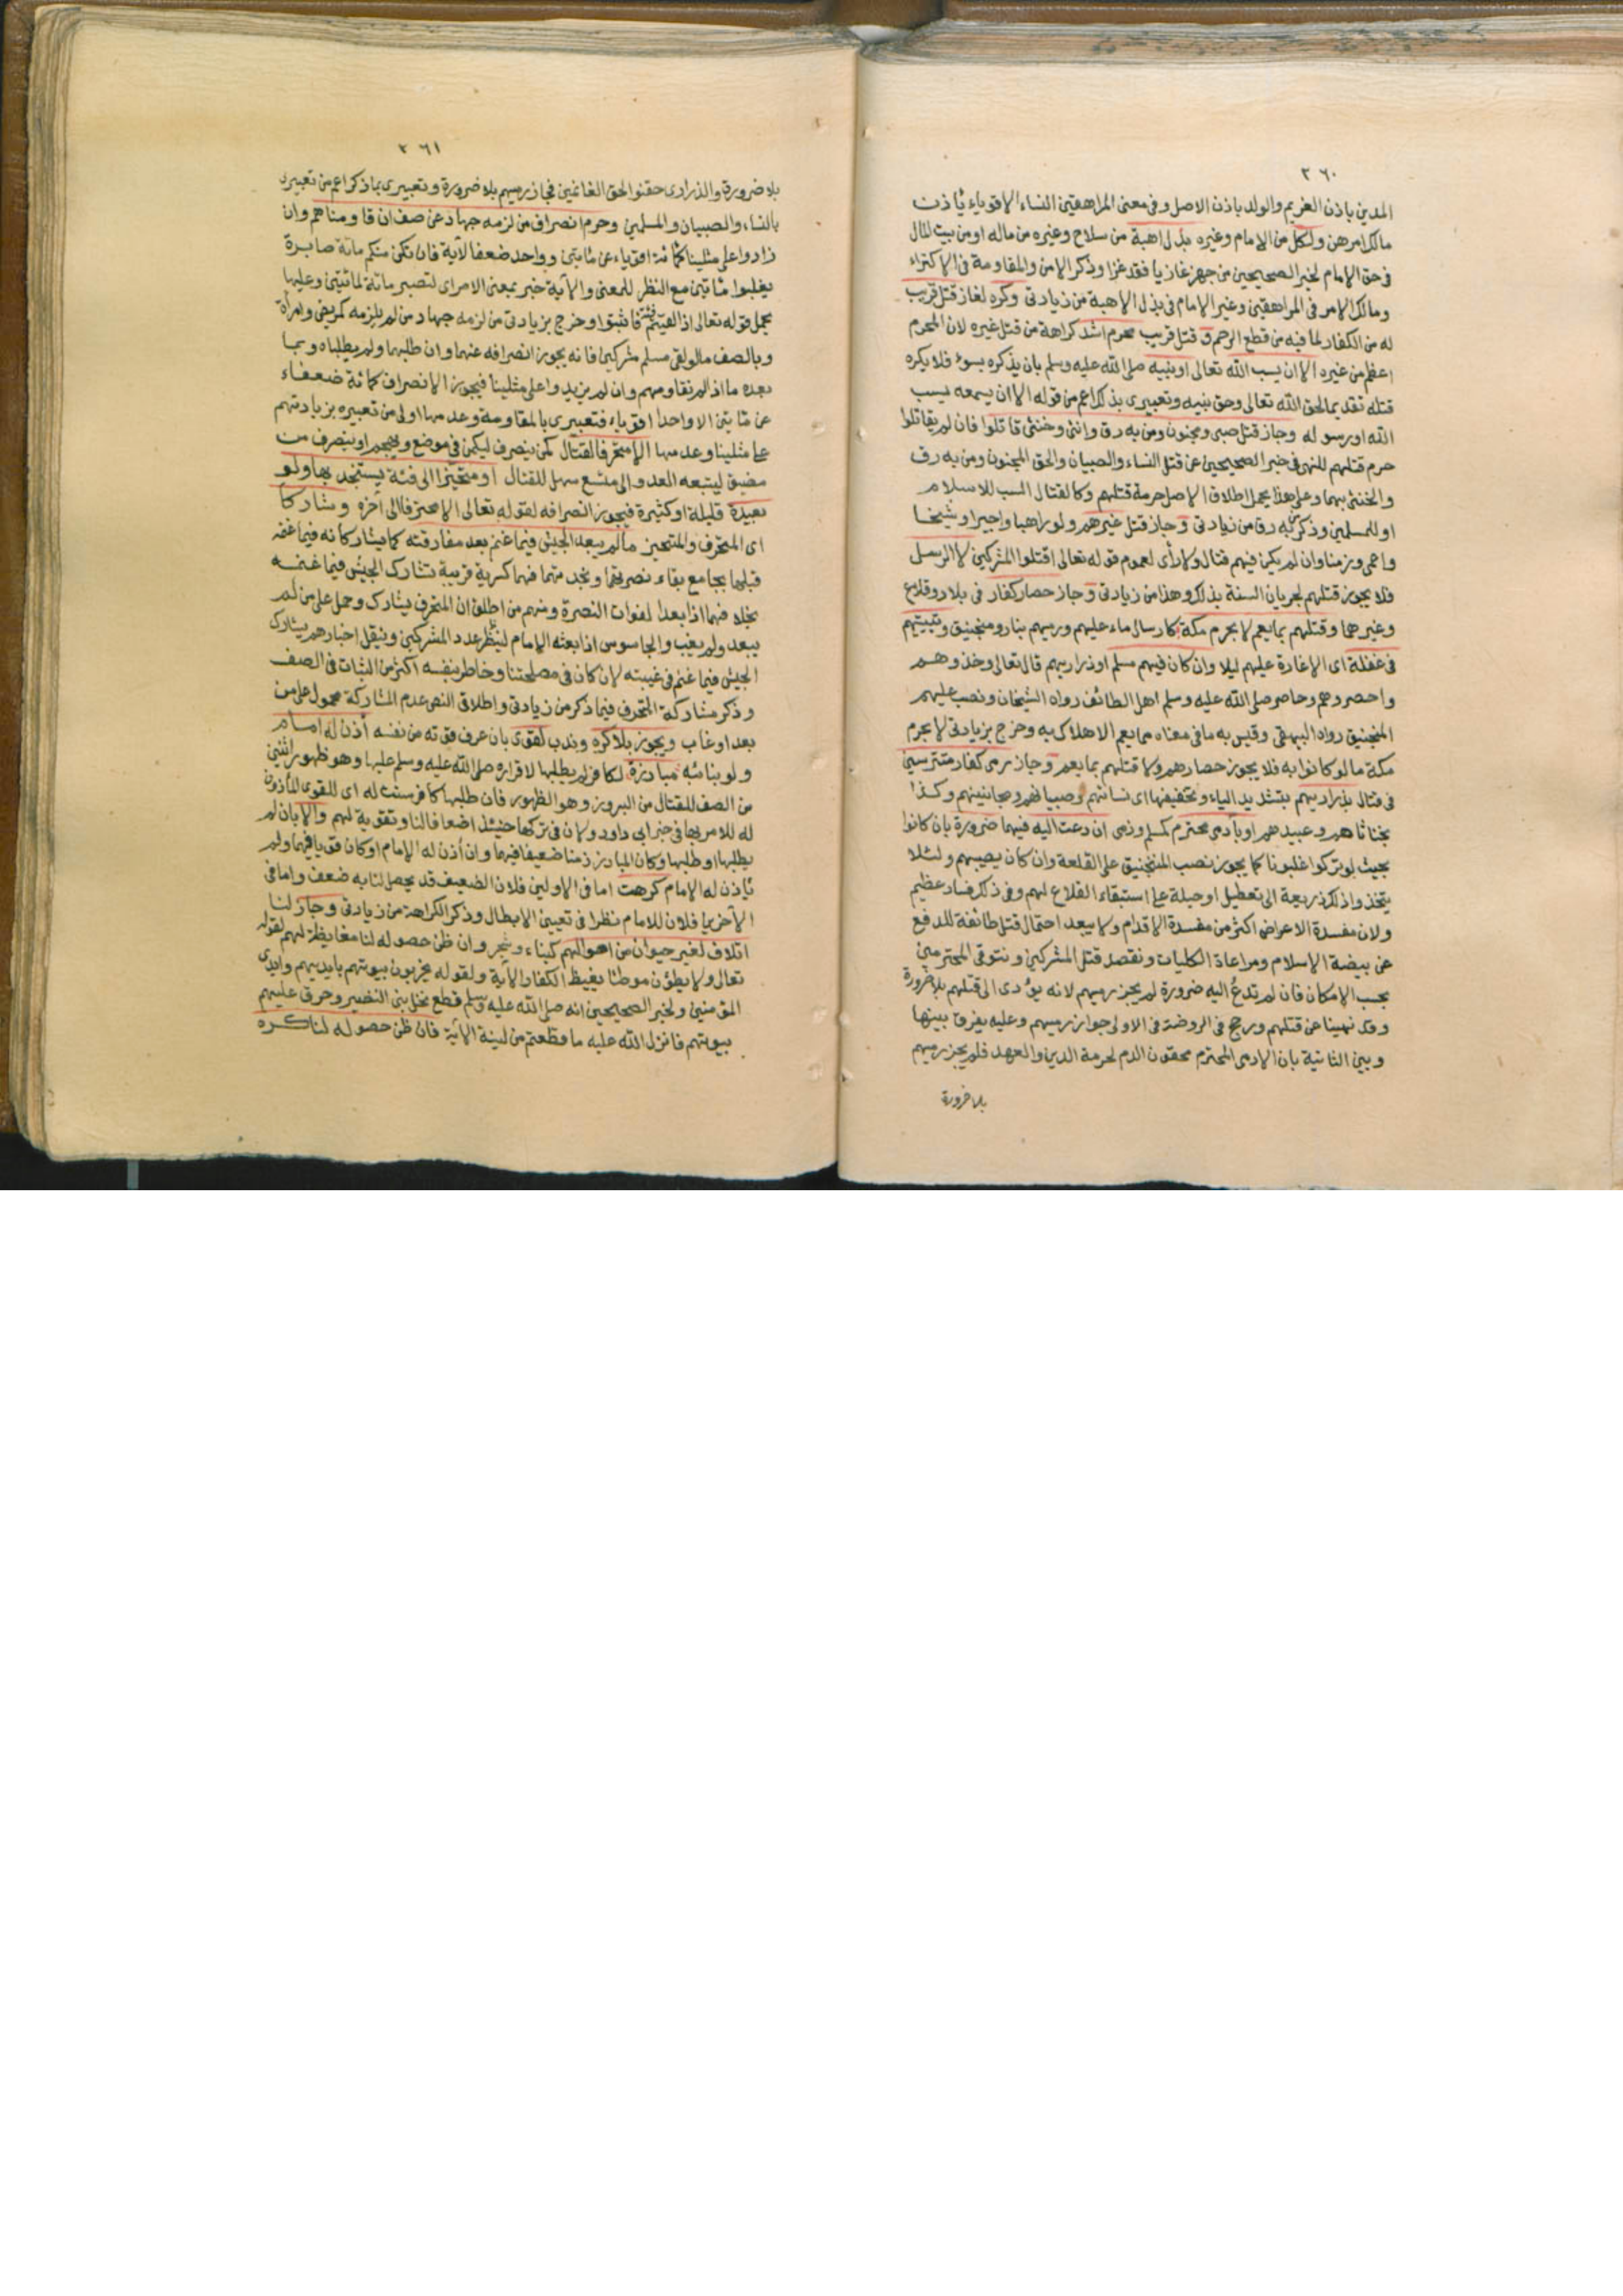 ٢٦٠
المدين باذن الغريم والولد باذن الاصل وفى معنى المراهقين النساء الاقوياء ياذن
مالك امرهن ولكل من الامام وغيره بذل اهبة من سلاح وغيره من ماله او من بيت المال
فى حق الامام لخبر الصحيحين من جهز غازيا فقد غزا وذكر الامن والمقاومة فى الاكتراء
ومالك الامر فى المراهقين وغير الامام فى بذل الاهبة من زيادتى وكره لغاز قتل قريب
له من الكفار لما فيه من قطع الرحم و قتل قريب محرم اشد كراهة من قتل غيره لان المحرم
اعظم من غيره الا ان يسب الله تعالى او نبيه صلى الله عليه وسلم بان يذكره بسوء فلا يكره
قتله تقديما لحق الله تعالى وحق نبيه وتعبيرى بذلك اعم من قوله الا ان يسمعه يسب
الله او رسوله وجاز قتل صبى ومجنون ومن به رق وانثى وخنثى قاتلوا فان لم يقاتلوا
حرم قتلهم للنهى فى خبر الصحيحين عن قتل النساء والصبيان والحق المجنون ومن به رق
والخنثى بهما وعلى هذا يحمل اطلاق الاصل حرمة قتلهم وكالقتال السب للاسلام
او للمسلمين وذكر من به رق من زيادتى وجاز قتل غيرهم ولو راهبا واجيرا وشيخا
واعمى وزمنا وان لم يكن فيهم قتال ولا رأى لعموم قوله تعالى اقتلوا المشركين لا الرسل
فلا يجوز قتلهم لجريان السنة بذلك وهذا من زيادتى وجاز حصار كفار فى بلاد وقلاع
وغيرهما وقتلهم بما يعم لا بحرم مكة كارسال ماء عليهم ورميهم بنار ومنجنيق وتبييتهم
فى غفلة اى الاغارة عليهم ليلا وان كان فيهم مسلم او ذراريهم قال تعالى وخذوهم
واحصروهم وحاصر صلى الله عليه وسلم اهل الطائف رواه الشيخان ونصب عليهم
المنجنيق رواه البيهقى وقيس به ما فى معناه مما يعم الاهلاك به وخرج بزيادتى لا بحرم
مكة ما لو كانوا به فلا يجوز حصارهم ولا قتلهم بما يعم وجاز رمى كفار متترسين
فى قتال بذراريهم بتشديد الياء وتخفيفها اى نسائهم وصبيانهم ومجانينهم وكذا
بخناثاهم وعبيدهم او بآدمى محترم كمسلم وذمى ان دعت اليه فيهما ضرورة بان كانوا
بحيث لو تركوا غلبونا كما يجوز نصب المنجنيق على القلعة وان كان يصيبهم ولئلا
يتخذوا ذلك ذريعة الى تعطيل او حيلة على استبقاء القلاع لهم وفى ذلك فساد عظيم
ولان مفسدة الاعراض اكثر من مفسدة الاقدام ولا يبعد احتمال قتل طائفة للدفع
عن بيضة الاسلام ومراعاة الكليات ونقصد قتل المشركين ونتوقى المحترمين
بحسب الامكان فان لم تدع اليه ضرورة لم يجز رميهم لانه يؤدى الى قتلهم بلا ضرورة
وقد نهينا عن قتلهم ورجح فى الروضة فى الاولى جواز رميهم وعليه يفرق بينها
وبين الثانية بان الادمى المحترم محقون الدم لحرمة الدين والعهد فلم يجز رميهم
بلا ضرورة
٢٦١
بلا ضرورة والذرارى حقنوا لحق الغانمين فجاز رميهم بلا ضرورة وتعبيرى بما ذكر اعم من تعبيره
بالنساء والصبيان والمسلمين وحرم انصراف من لزمه جهاد عن صف ان قاومناهم وان
زادوا على مثلينا كمائة اقوياء عن مائتين وواحد ضعفا لآية فان تكن منكم مائة صابرة
يغلبوا مائتين مع النظر للمعنى والآية خبر بمعنى الامر اى لتصبر مائة لمائتين وعليها
يحمل قوله تعالى اذا لقيتم فئة فاثبتوا وخرج بزيادتى من لزمه جهاد من لم يلزمه كمريض وامرأة
وبالصف ما لو لقى مسلم مشركين فانه يجوز انصرافه عنهما وان طلبهما ولم يطلباه وبما
بعده ما اذا لم نقاومهم وان لم يزيدوا على مثلينا فيجوز الانصراف كمائة ضعفاء
عن مائتين الا واحدا اقوياء فتعبيرى بالمقاومة وعدمها اولى من تعبيره بزيادتهم
على مثلينا وعدمها الا متحرفا لقتال كمن ينصرف ليكمن فى موضع ويهجم او ينصرف من
مضيق ليتبعه العدو الى متسع سهل للقتال او متحيزا الى فئة يستنجد بها ولو
بعيدة قليلة او كثيرة فيجوز انصرافه لقوله تعالى الا متحرفا الى آخره وشاركا
اى المتحرف والمتحيز ما لم يبعد الجيش فيما غنم بعد مفارقته كما يشاركانه فيما غنمه
قبلها بجامع بقاء نصرتهما ونجدتهما فهما كسرية قريبة تشارك الجيش فيما غنمه
بخلافهما اذا بعدا لفوات النصرة ومنهم من اطلق ان المتحرف يشارك وحمل على من لم
يبعد ولم يغب والجاسوس اذا بعثه الامام لينظر عدد المشركين وينقل اخبارهم يشارك
الجيش فيما غنم فى غيبته لانه كان فى مصلحتنا وخاطر بنفسه اكثر من الثبات فى الصف
وذكر مشاركة المتحرف فيما ذكر من زيادتى واطلاق النص عدم المشاركة محمول على من
بعد او غاب ويجوز بلا كره وندب لقوى بان عرف قوته من نفسه أذن له امام
ولو بنائبه مبارزة لكافر لم يطلبها لاقراره صلى الله عليه وسلم عليها وهو ظهور اثنين
من الصف للقتال من البروز وهو الظهور فان طلبها كافر سنت له اى للقوى المأذون
له للامر بها فى خبر ابى داود ولان فى تركها حينئذ اضعافا لنا وتقوية لهم والا بان لم
يطلبها او طلبها وكان المبارز منا ضعيفا فيهما وان أذن له الامام او كان قويا فيهما ولم
ياذن له الامام كرهت اما فى الاولين فلان الضعيف قد يحصل لنا به ضعف واما فى
الآخرين فلان للامام نظرا فى تعيين الابطال وذكر الكراهة من زيادتى وجاز لنا
اتلاف لغير حيوان من اموالهم كبناء وشجر وان ظن حصوله لنا مغايظة لهم لقوله
تعالى ولا يطؤن موطئا يغيظ الكفار الآية ولقوله يخربون بيوتهم بايديهم وايدى
المؤمنين ولخبر الصحيحين انه صلى الله عليه وسلم قطع نخل بنى النضير وحرق عليهم
بيوتهم فانزل الله عليه ما قطعتم من لينة الآية فان ظن حصوله لنا كره